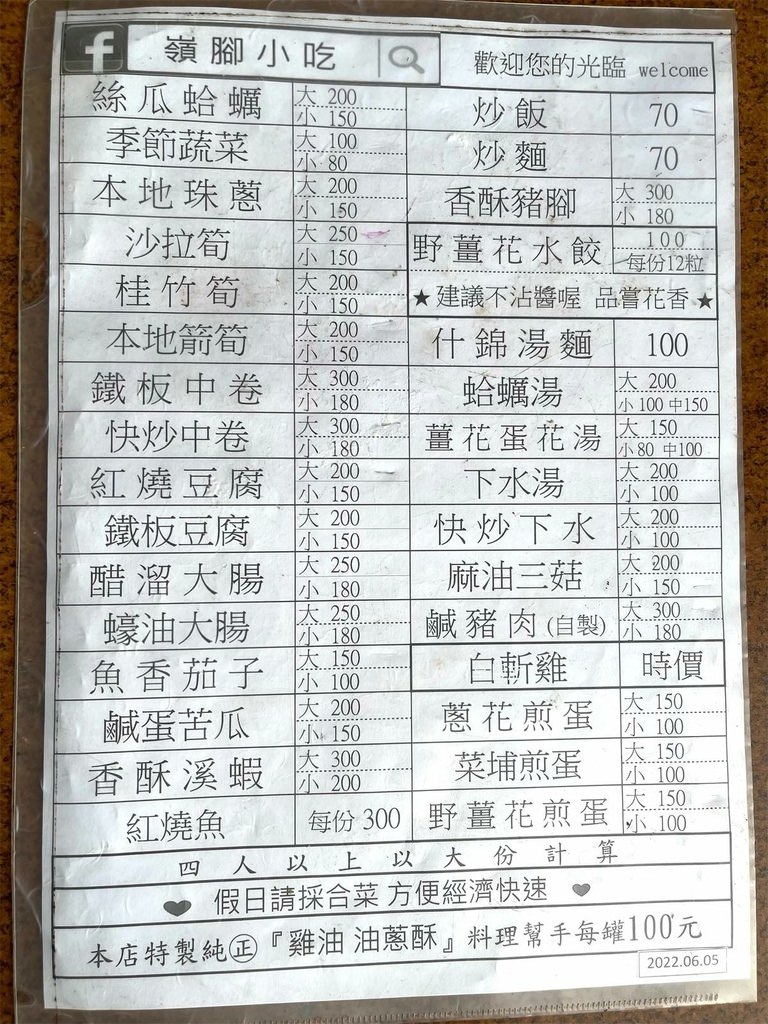 f 嶺腳小吃
歡迎您的光臨 welcome
絲瓜蛤蠣 大 200 小 150
季節蔬菜 大 100 小 80
本地珠蔥 大 200 小 150
沙拉筍 大 250 小 150
桂竹筍 大 200 小 150
本地箭筍 大 200 小 150
鐵板中卷 大 300 小 180
快炒中卷 大 300 小 180
紅燒豆腐 大 200 小 150
鐵板豆腐 大 200 小 150
醋溜大腸 大 250 小 180
蠔油大腸 大 250 小 180
魚香茄子 大 150 小 100
鹹蛋苦瓜 大 200 小 150
香酥溪蝦 大 300 小 200
紅燒魚 每份 300
炒飯 70
炒麵 70
香酥豬腳 大 300 小 180
野薑花水餃 100 每份12粒
★建議不沾醬喔 品嘗花香★
什錦湯麵 100
蛤蠣湯 大 200 小 100 中150
薑花蛋花湯 大 150 小 80 中100
下水湯 大 200 小 100
快炒下水 大 200 小 100
麻油三菇 大 200 小 150
鹹豬肉(自製) 大 300 小 180
白斬雞 時價
蔥花煎蛋 大 150 小 100
菜埔煎蛋 大 150 小 100
野薑花煎蛋 大 150 小 100
四人以上以大份計算
♥ 假日請採合菜 方便經濟快速 ♥
本店特製純㊣『雞油 油蔥酥』料理幫手每罐100元
2022.06.05